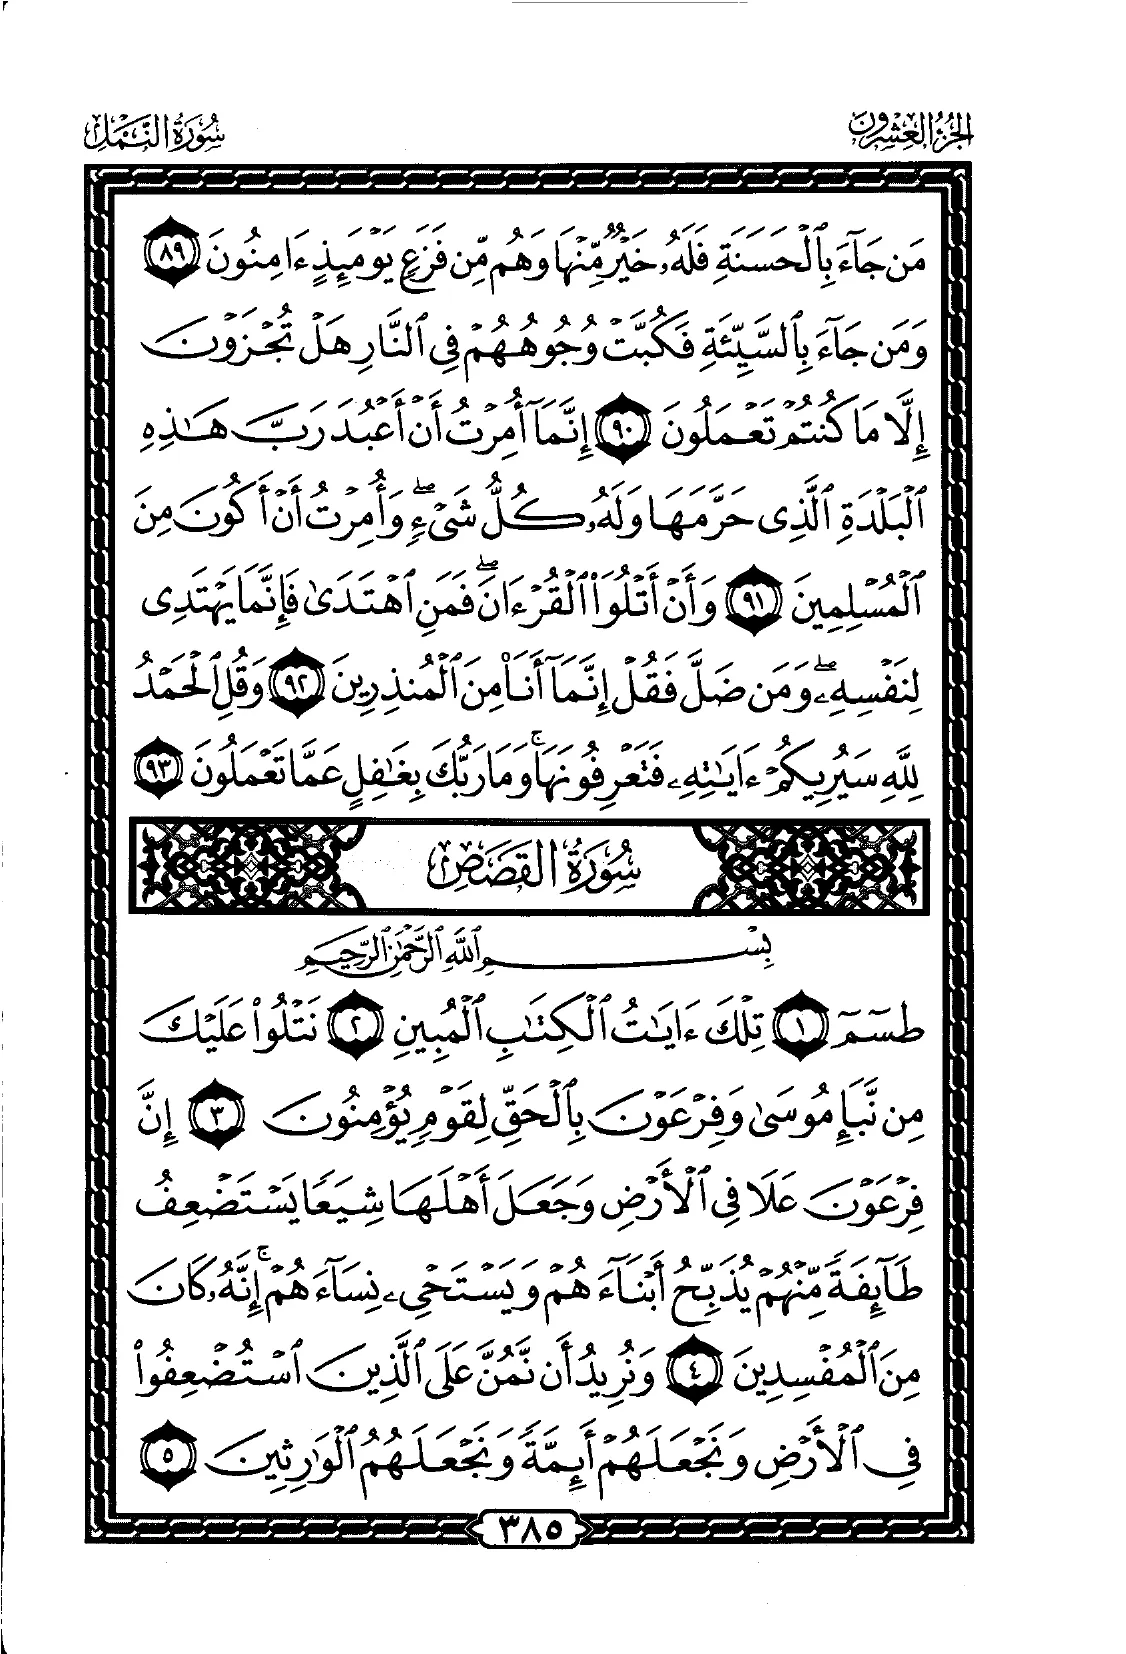 الجزء العشرون
سورة النمل
مَن جَآءَ بِٱلْحَسَنَةِ فَلَهُۥ خَيْرٌ مِّنْهَا وَهُم مِّن فَزَعٍ يَوْمَئِذٍ ءَامِنُونَ ٨٩
وَمَن جَآءَ بِٱلسَّيِّئَةِ فَكُبَّتْ وُجُوهُهُمْ فِى ٱلنَّارِ هَلْ تُجْزَوْنَ
إِلَّا مَا كُنتُمْ تَعْمَلُونَ ٩٠ إِنَّمَآ أُمِرْتُ أَنْ أَعْبُدَ رَبَّ هَـٰذِهِ
ٱلْبَلْدَةِ ٱلَّذِى حَرَّمَهَا وَلَهُۥ كُلُّ شَىْءٍ ۖ وَأُمِرْتُ أَنْ أَكُونَ مِنَ
ٱلْمُسْلِمِينَ ٩١ وَأَنْ أَتْلُوَا۟ ٱلْقُرْءَانَ ۖ فَمَنِ ٱهْتَدَىٰ فَإِنَّمَا يَهْتَدِى
لِنَفْسِهِۦ ۖ وَمَن ضَلَّ فَقُلْ إِنَّمَآ أَنَا۠ مِنَ ٱلْمُنذِرِينَ ٩٢ وَقُلِ ٱلْحَمْدُ
لِلَّهِ سَيُرِيكُمْ ءَايَـٰتِهِۦ فَتَعْرِفُونَهَا ۚ وَمَا رَبُّكَ بِغَـٰفِلٍ عَمَّا تَعْمَلُونَ ٩٣
سُورَةُ القَصَصِ
بِسْمِ ٱللَّهِ ٱلرَّحْمَـٰنِ ٱلرَّحِيمِ
طسٓمٓ ١ تِلْكَ ءَايَـٰتُ ٱلْكِتَـٰبِ ٱلْمُبِينِ ٢ نَتْلُوا۟ عَلَيْكَ
مِن نَّبَإِ مُوسَىٰ وَفِرْعَوْنَ بِٱلْحَقِّ لِقَوْمٍ يُؤْمِنُونَ ٣ إِنَّ
فِرْعَوْنَ عَلَا فِى ٱلْأَرْضِ وَجَعَلَ أَهْلَهَا شِيَعًا يَسْتَضْعِفُ
طَآئِفَةً مِّنْهُمْ يُذَبِّحُ أَبْنَآءَهُمْ وَيَسْتَحْىِۦ نِسَآءَهُمْ ۚ إِنَّهُۥ كَانَ
مِنَ ٱلْمُفْسِدِينَ ٤ وَنُرِيدُ أَن نَّمُنَّ عَلَى ٱلَّذِينَ ٱسْتُضْعِفُوا۟
فِى ٱلْأَرْضِ وَنَجْعَلَهُمْ أَئِمَّةً وَنَجْعَلَهُمُ ٱلْوَٰرِثِينَ ٥
٣٨٥